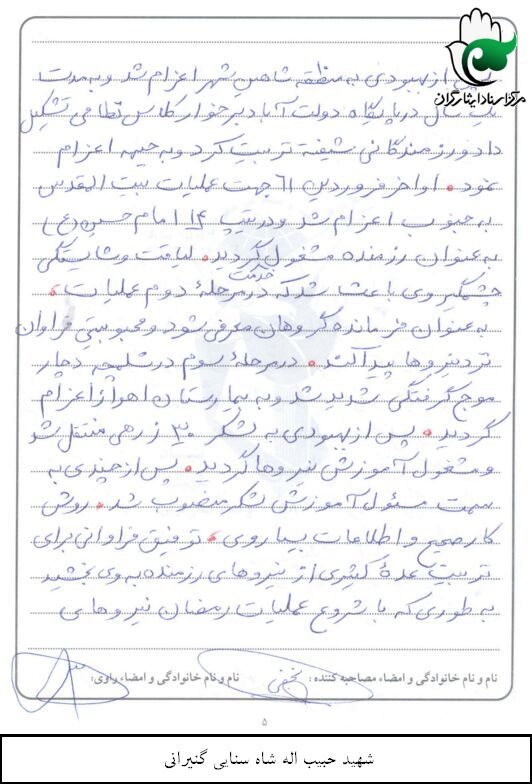 مرکز اسناد ایثارگران
از بهبودی به منطقه شاهین شهر اعزام شد و به مدت
یک سال در پایگاه دولت آباد برخوار کلاس نظامی تشکیل
داد و رزمندگانی شیفته تربیت کرد و به جبهه اعزام
نمود. اواخر فروردین ۶۱ جهت عملیات بیت المقدس
به جنوب اعزام شد و در تیپ ۱۴ امام حسین (ع)
به عنوان رزمنده مشغول خدمت گردید. لیاقت و شایستگی
چشمگیر وی باعث شد که در مرحلهٔ دوم عملیات،
به عنوان فرمانده گروهان معرفی شود و محبوبیتی فراوان
نزد نیروها پیدا کند. در مرحلهٔ سوم در شلمچه دچار
موج گرفتگی شدید شد و به بیمارستان اهواز اعزام
گردید. پس از بهبودی به لشکر ۳۰ زرهی منتقل شد
و مشغول آموزش نیروها گردید. پس از چندی به
سمت مسئول آموزش لشکر منصوب شد. روش
کار صحیح و اطلاعات بسیار وی، توفیق فراوانی برای
تربیت عدهٔ کثیری از نیروهای رزمنده به وی بخشید
به طوری که با شروع عملیات رمضان نیروهای
نام و نام خانوادگی و امضاء مصاحبه کننده: نجفی نام و نام خانوادگی و امضاء راوی:
۵
شهید حبیب اله شاه سنایی گنیرانی